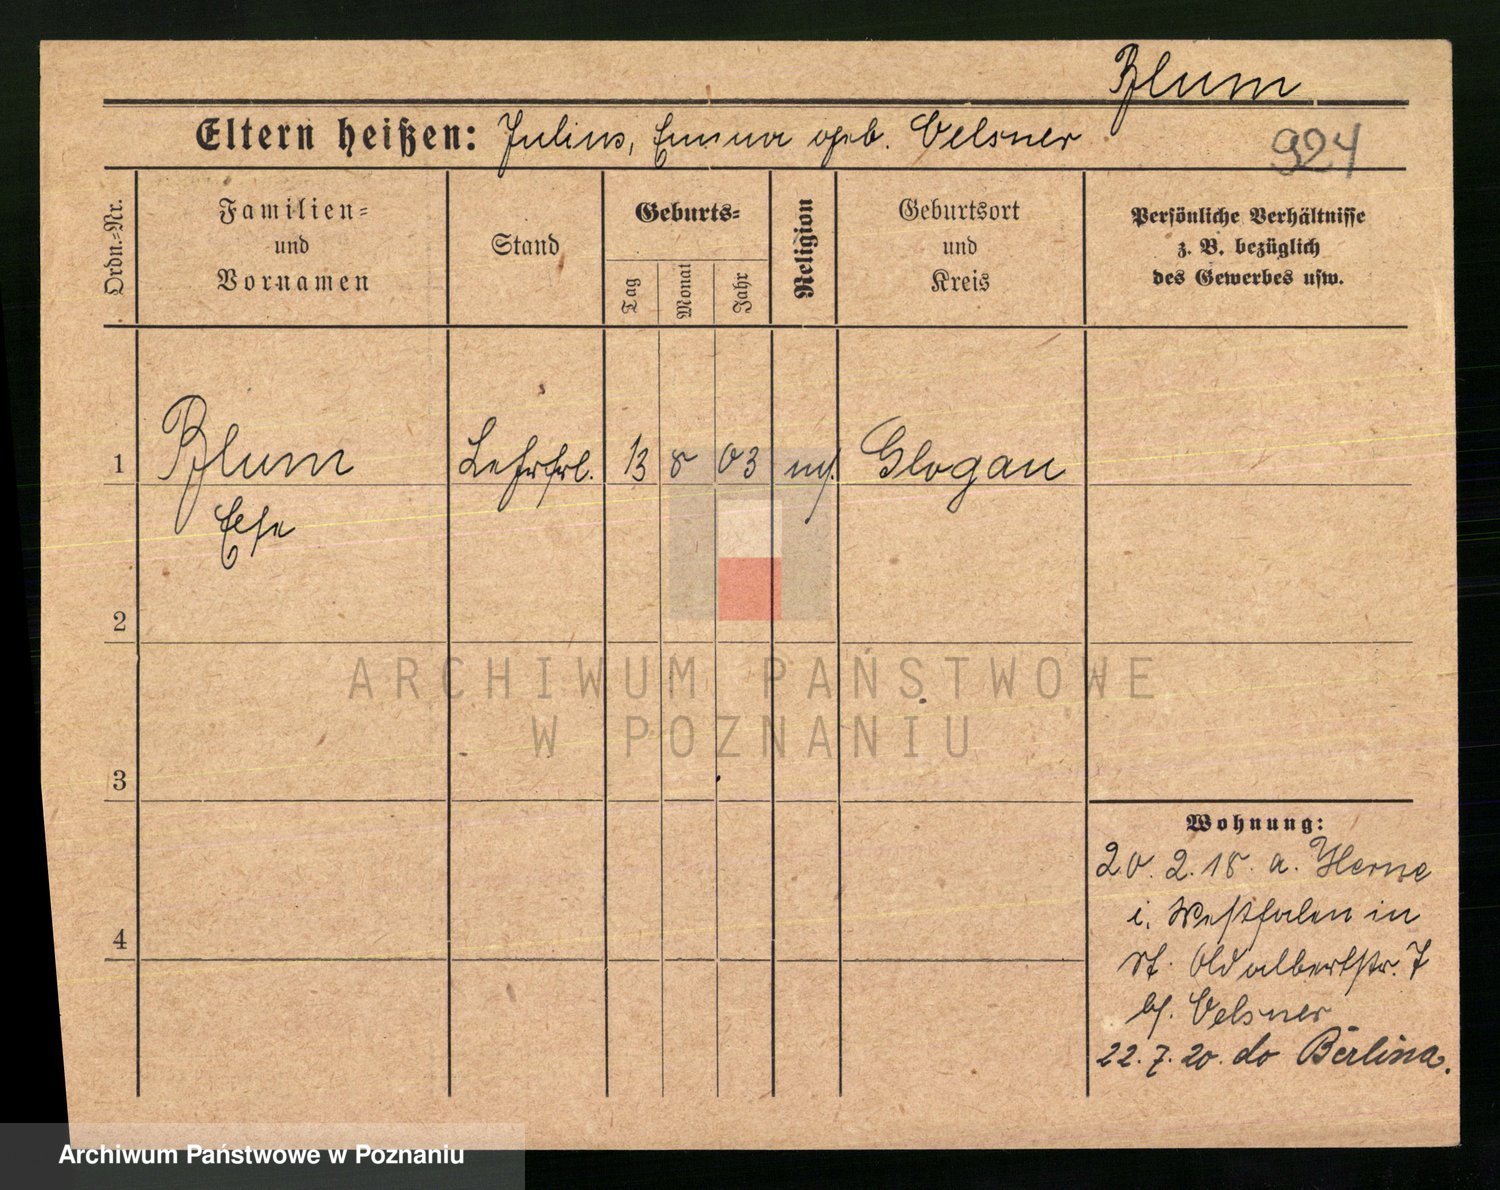 Blum
Eltern heißen: Julius, Emma geb. Oelsner
924
Ordn.-Nr.
Familien-
und
Vornamen
Stand
Geburts-
Tag
Monat
Jahr
Religion
Geburtsort
und
Kreis
Persönliche Verhältnisse
z. B. bezüglich
des Gewerbes usw.
1
Blum
Lehrfrl.
13 8 03
Glogau
2
ARCHIWUM PAŃSTWOWE
W POZNANIU
3
Wohnung:
20. 2. 18. a. Herne
i. Westfalen in
4
bf. Oelsner
22. 7. 20. do Berlina.
Archiwum Państwowe w Poznaniu